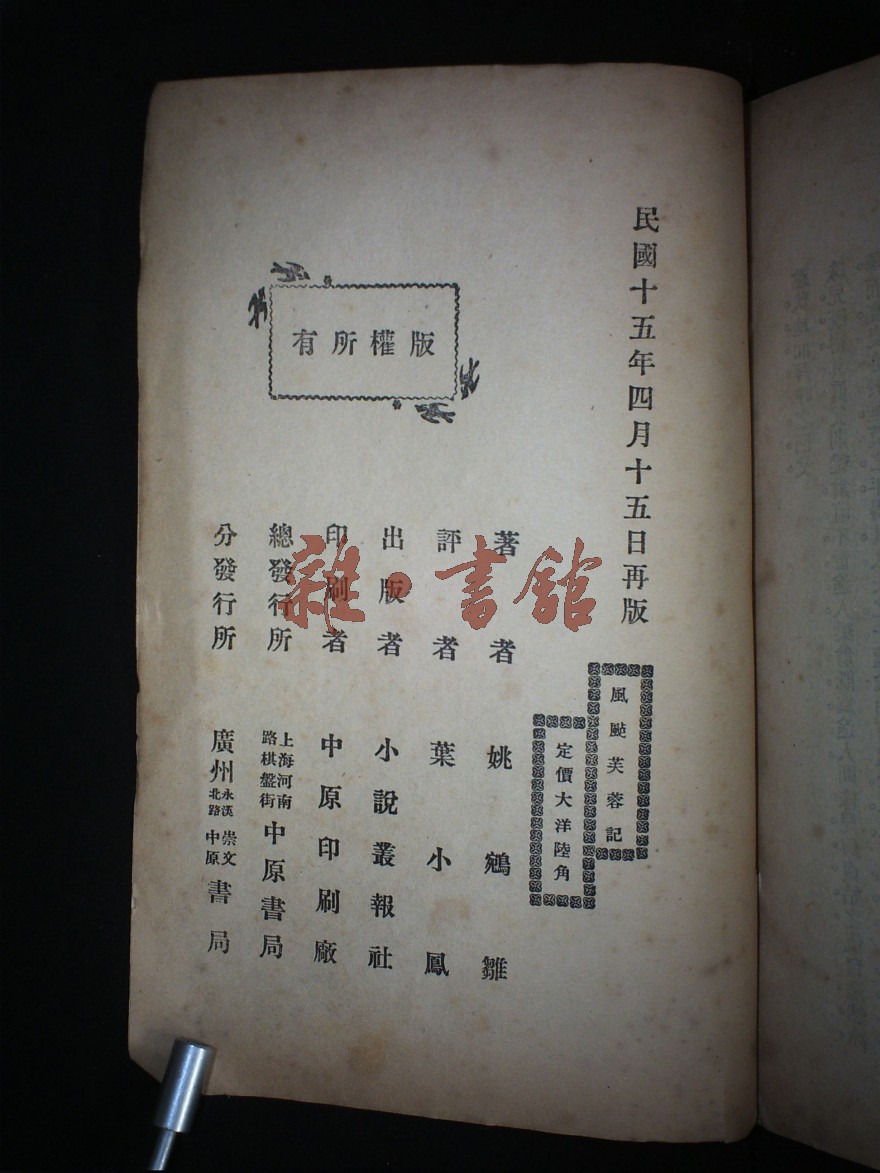 民國十五年四月十五日再版
風颭芙蓉記
定價大洋陸角
版權所有
著者 姚鵷雛
評者 葉小鳳
出版者 小說叢報社
印刷者 中原印刷廠
總發行所 上海河南路棋盤街 中原書局
分發行所 廣州永漢北路 崇文中原 書局
雜·書館